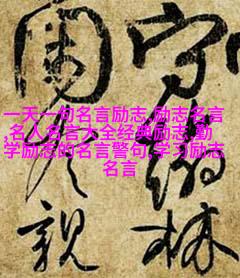 一天一句名言励志,励志名言
,名人名言大全经典励志,勤
学励志的名言警句,学习励志
名言
守林
親